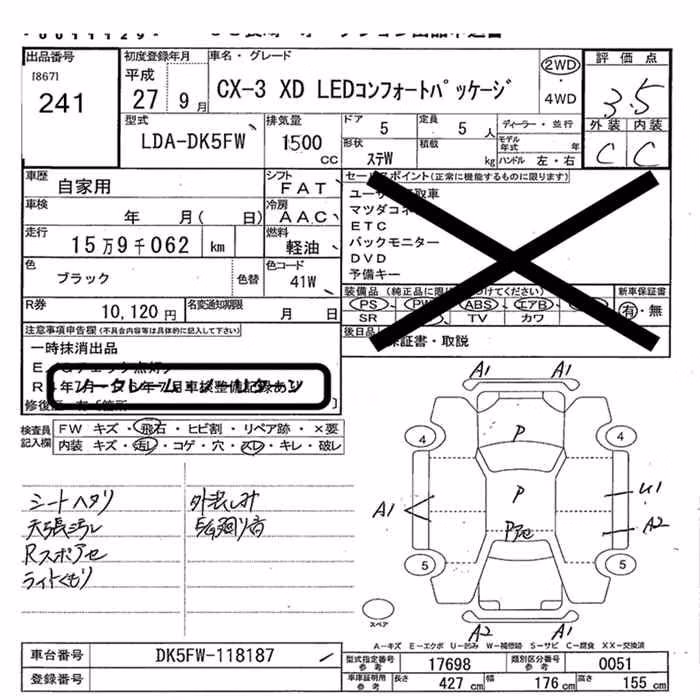 出品番号
[867]
241
初度登録年月
平成
27 9月
車名・グレード
CX-3 XD LEDコンフォートパッケージ
2WD
・
4WD
評価点
3.5
外装 内装
C C
型式
LDA-DK5FW
排気量
1500
cc
ドア 5
定員 5人
ディーラー・並行
モデル年式 年
形状 ステW
積載 kg
ハンドル 左・右
車歴
自家用
シフト
FAT
車検
年 月( 日)
冷房
AAC
走行
15万9千062 km
燃料
軽油
色
ブラック
色替
色コード
41W
R券
10,120円
名変通知期限
月 日
セールスポイント(正常に機能するものに限ります)
ETC
バックモニター
DVD
予備キー
新車保証書
有・無
PS
ABS
エアB
SR
TV
カワ
後日品
保証書・取説
注意事項申告欄(不具合内容等は具体的に記入して下さい)
一時抹消出品
検査員記入欄
FW キズ・飛石・ヒビ割・リペア跡・×要
内装 キズ・汚レ・コゲ・穴・スレ・キレ・破レ
シートヘタリ
天張汚レ
Rスポアセ
ライトくもり
外装しみ
A1
A1
4
P
4
A1
P
U1
A2
Pアセ
5
5
スペア
A2
A1
A-キズ E-エクボ U-凹み W-補修跡 S-サビ C-腐食 XX-交換済
車台番号
DK5FW-118187
登録番号
型式指定番号
参考
17698
類別区分番号
参考
0051
車庫証明用
参考
長さ 427 cm
幅 176 cm
高さ 155 cm